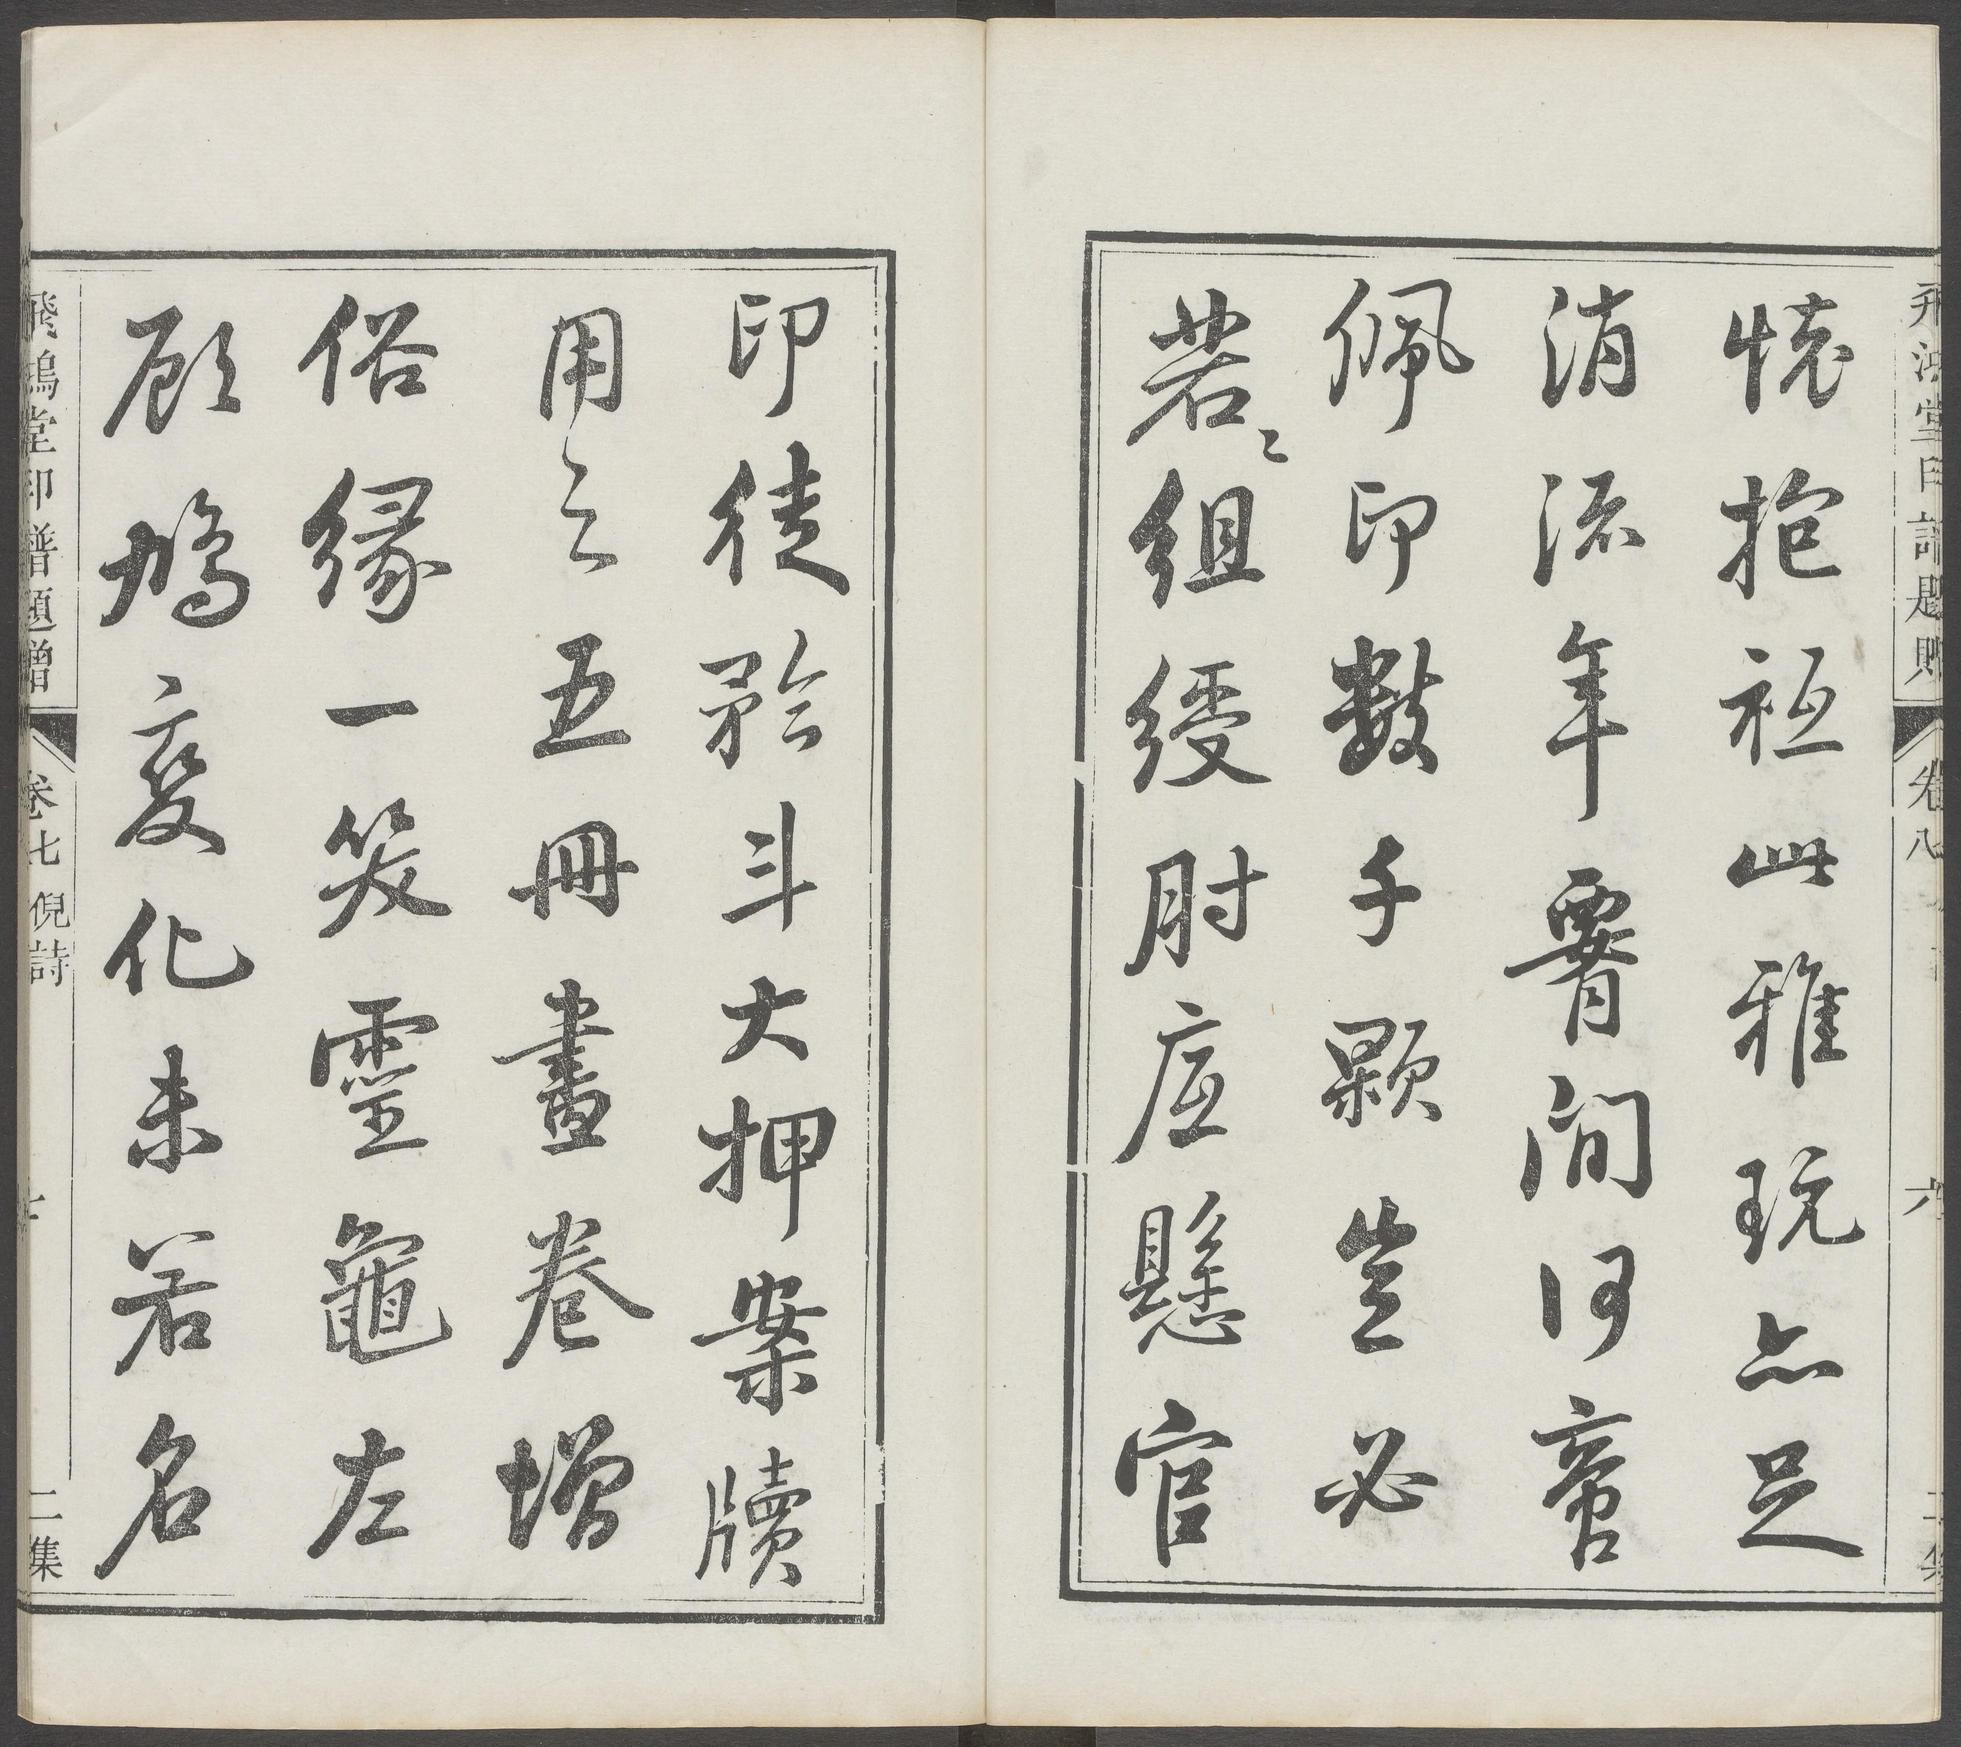 飛鴻堂印譜題贈 卷八 六 二集
懷抱祗此雅玩亦足
消流年腰间何啻
佩印數千顆豈必
若〻組綬肘底懸官
印徒矜斗大押案牘
用之五冊畫卷增
俗緣一笑靈龜左
顧鳩變化未若名
飛鴻堂印譜題贈 卷七 倪詩 七 二集